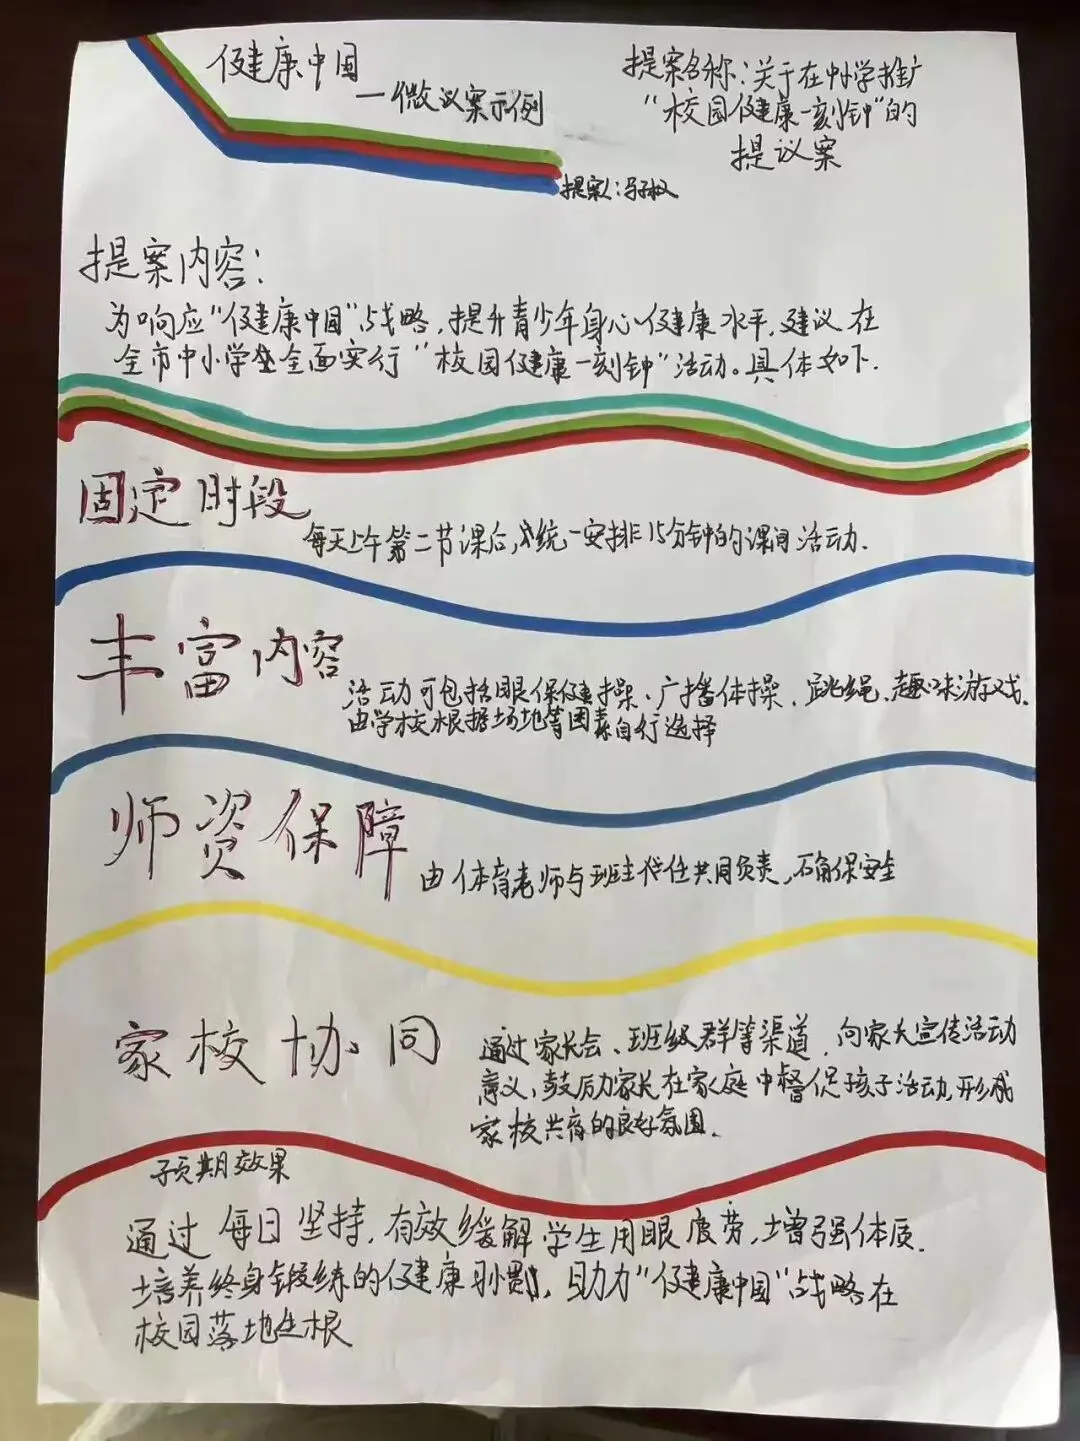 健康中国
一微议案示例
提案名称：关于在中小学推广
“校园健康一刻钟”的
提议案
提案人：
提案内容：
为响应“健康中国”战略，提升青少年身心健康水平，建议在
全市中小学全面实行“校园健康一刻钟”活动。具体如下.
固定时段
每天上午第二节课后，统一安排15分钟的课间活动.
丰富内容
活动可包括眼保健操、广播体操、跳绳、趣味游戏.
由学校根据场地等因素自行选择
师资保障
由体育老师与班主任共同负责，确保安全
家校协同
通过家长会、班级群等渠道，向家长宣传活动
意义，鼓励家长在家庭中督促孩子活动，形成
家校共育的良好氛围.
预期效果
通过每日坚持，有效缓解学生用眼疲劳，增强体质.
培养终身锻练的健康习惯，助力“健康中国”战略在
校园落地生根